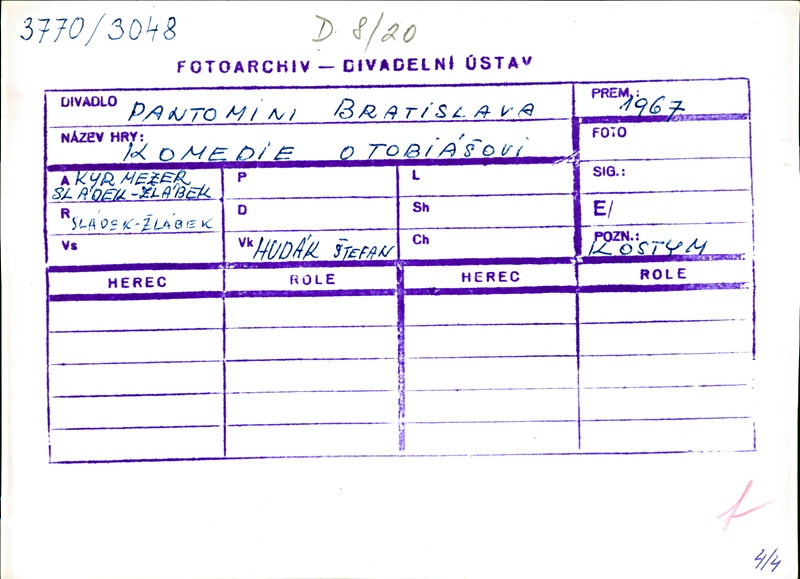 3770/3048 D 8/20
FOTOARCHIV — DIVADELNÍ ÚSTAV
DIVADLO PANTOMIMI BRATISLAVA
PREM.: 1967
NÁZEV HRY: KOMEDIE O TOBIÁŠOVI
FOTO
A KYRMEZER
SLÁDEK-ŽLÁBEK
P
L
SIG.:
R SLÁDEK-ŽLÁBEK
D
Sh
E/
Vs
Vk HUDÁK ŠTEFAN
Ch
POZN.: KOSTYM
HEREC ROLE HEREC ROLE
4/4